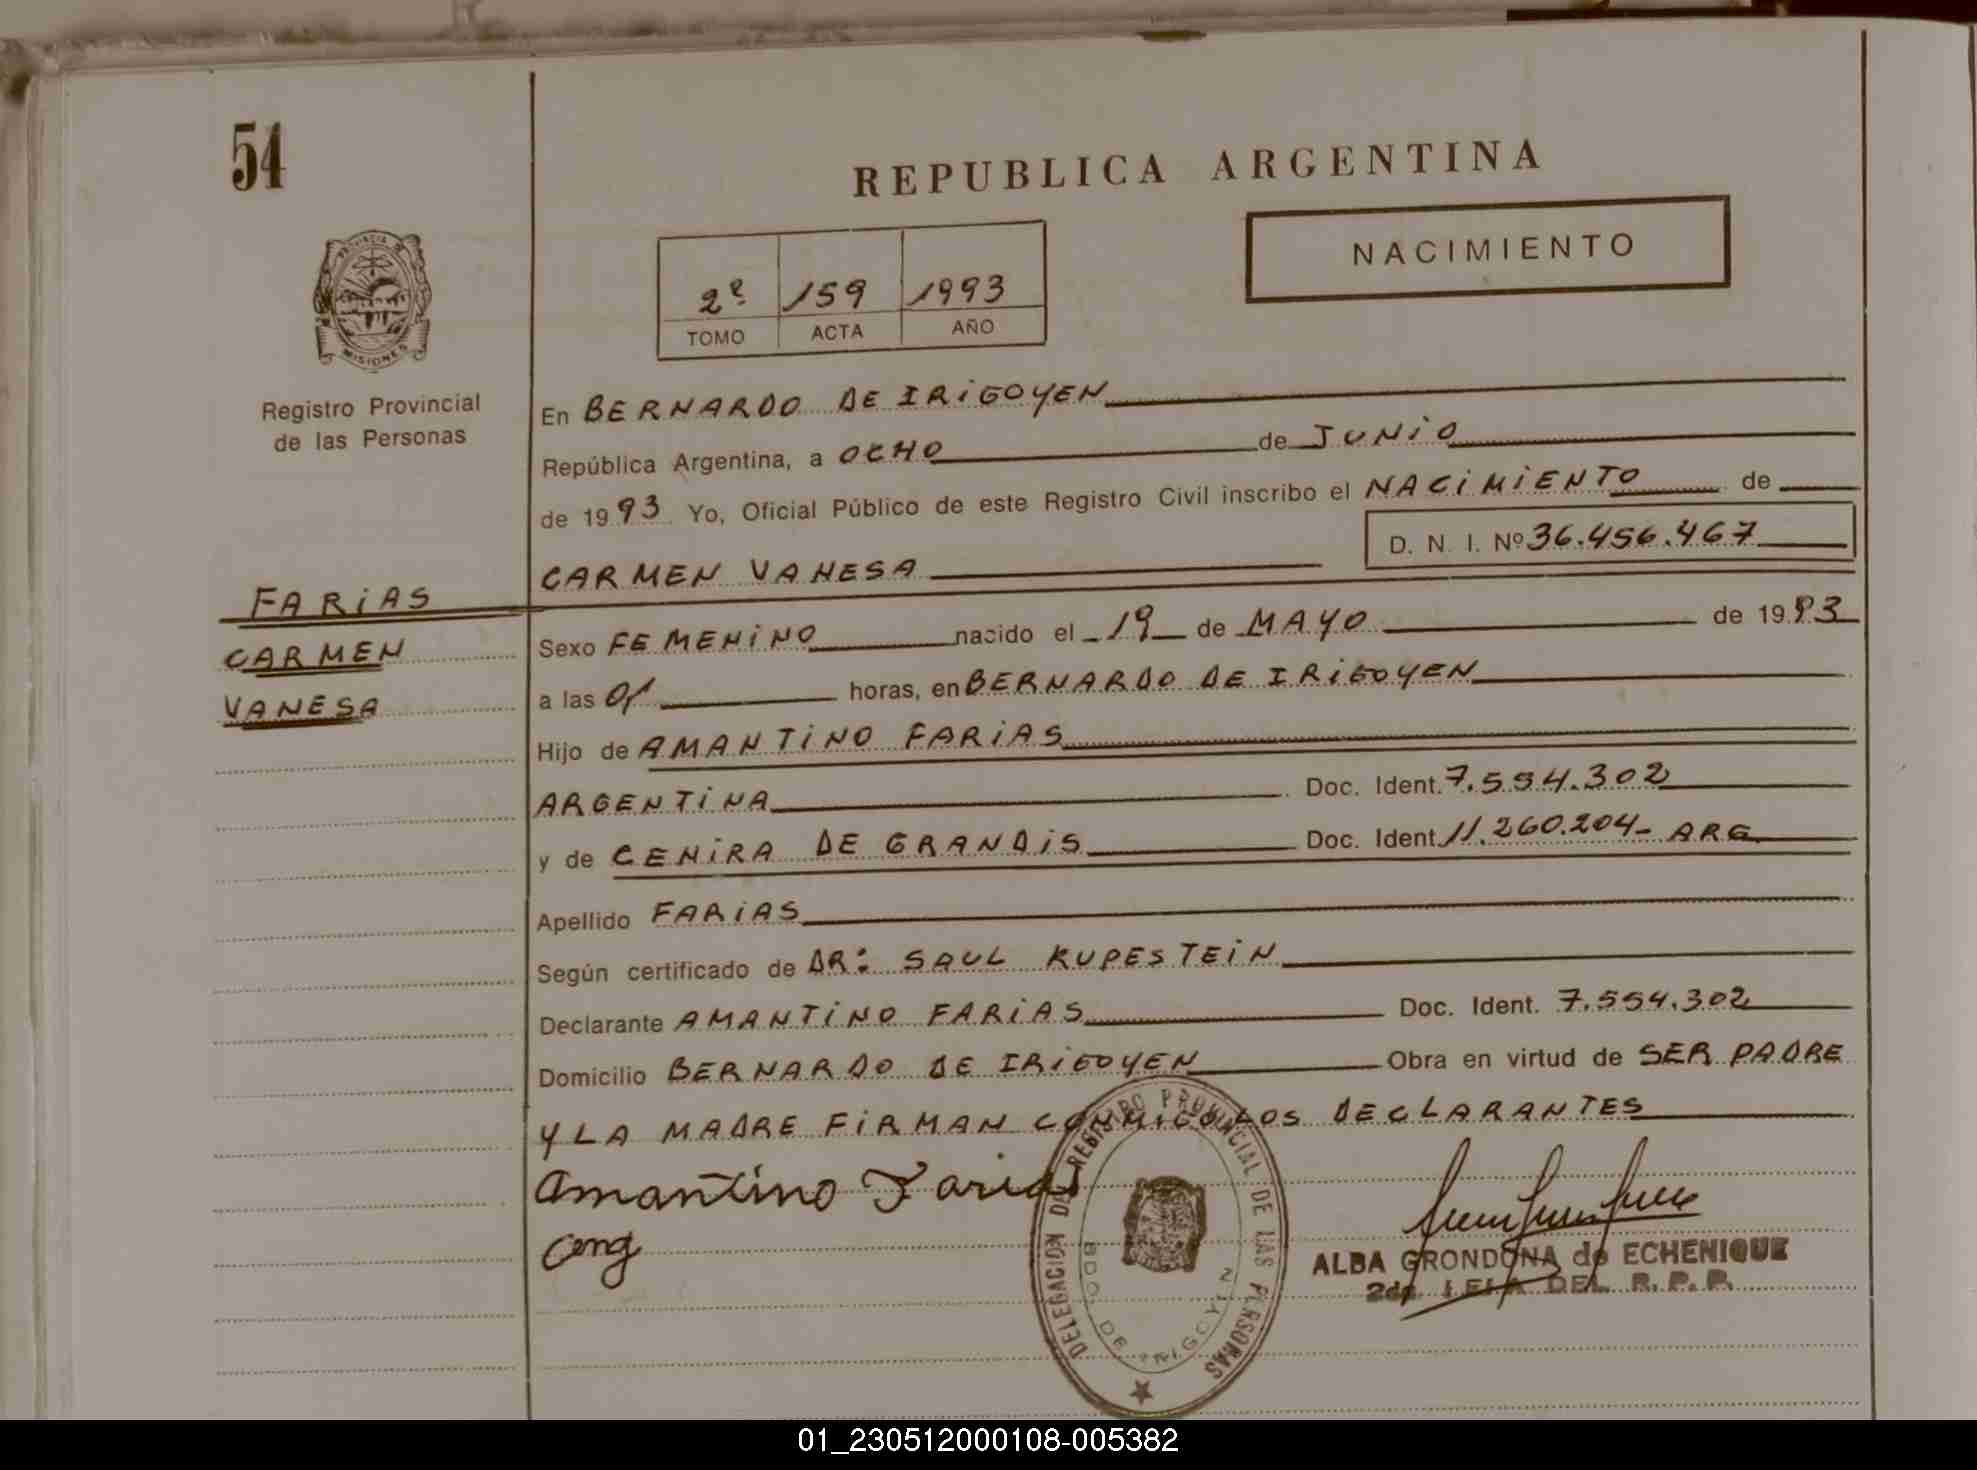 54
REPUBLICA ARGENTINA
NACIMIENTO
2º 159 1993
TOMO ACTA AÑO
PROVINCIA DE MISIONES
Registro Provincial
de las Personas
En BERNARDO DE IRIGOYEN
República Argentina, a OCHO de JUNIO
de 1993 Yo, Oficial Público de este Registro Civil inscribo el NACIMIENTO de
D. N. I. Nº 36.456.467
CARMEN VANESA
FARIAS
CARMEN
VANESA
Sexo FEMENINO nacido el 19 de MAYO de 1993
a las 01 horas, en BERNARDO DE IRIGOYEN
Hijo de AMANTINO FARIAS
ARGENTINA Doc. Ident. 7.594.302
y de CENIRA DE GRANDIS Doc. Ident. 11.260.204- ARG
Apellido FARIAS
Según certificado de DR: SAUL KUPESTEIN
Declarante AMANTINO FARIAS Doc. Ident. 7.554.302
Domicilio BERNARDO DE IRIGOYEN Obra en virtud de SER PADRE
Y LA MADRE FIRMAN CONMIGO LOS DECLARANTES
Amantino Farias
DELEGACION DEL REGISTRO PROVINCIAL DE LAS PERSONAS
BDO. DE IRIGOYEN
ALBA GRONDONA de ECHENIQUE
2da. JEFA DEL R. P. P.
01_230512000108-005382